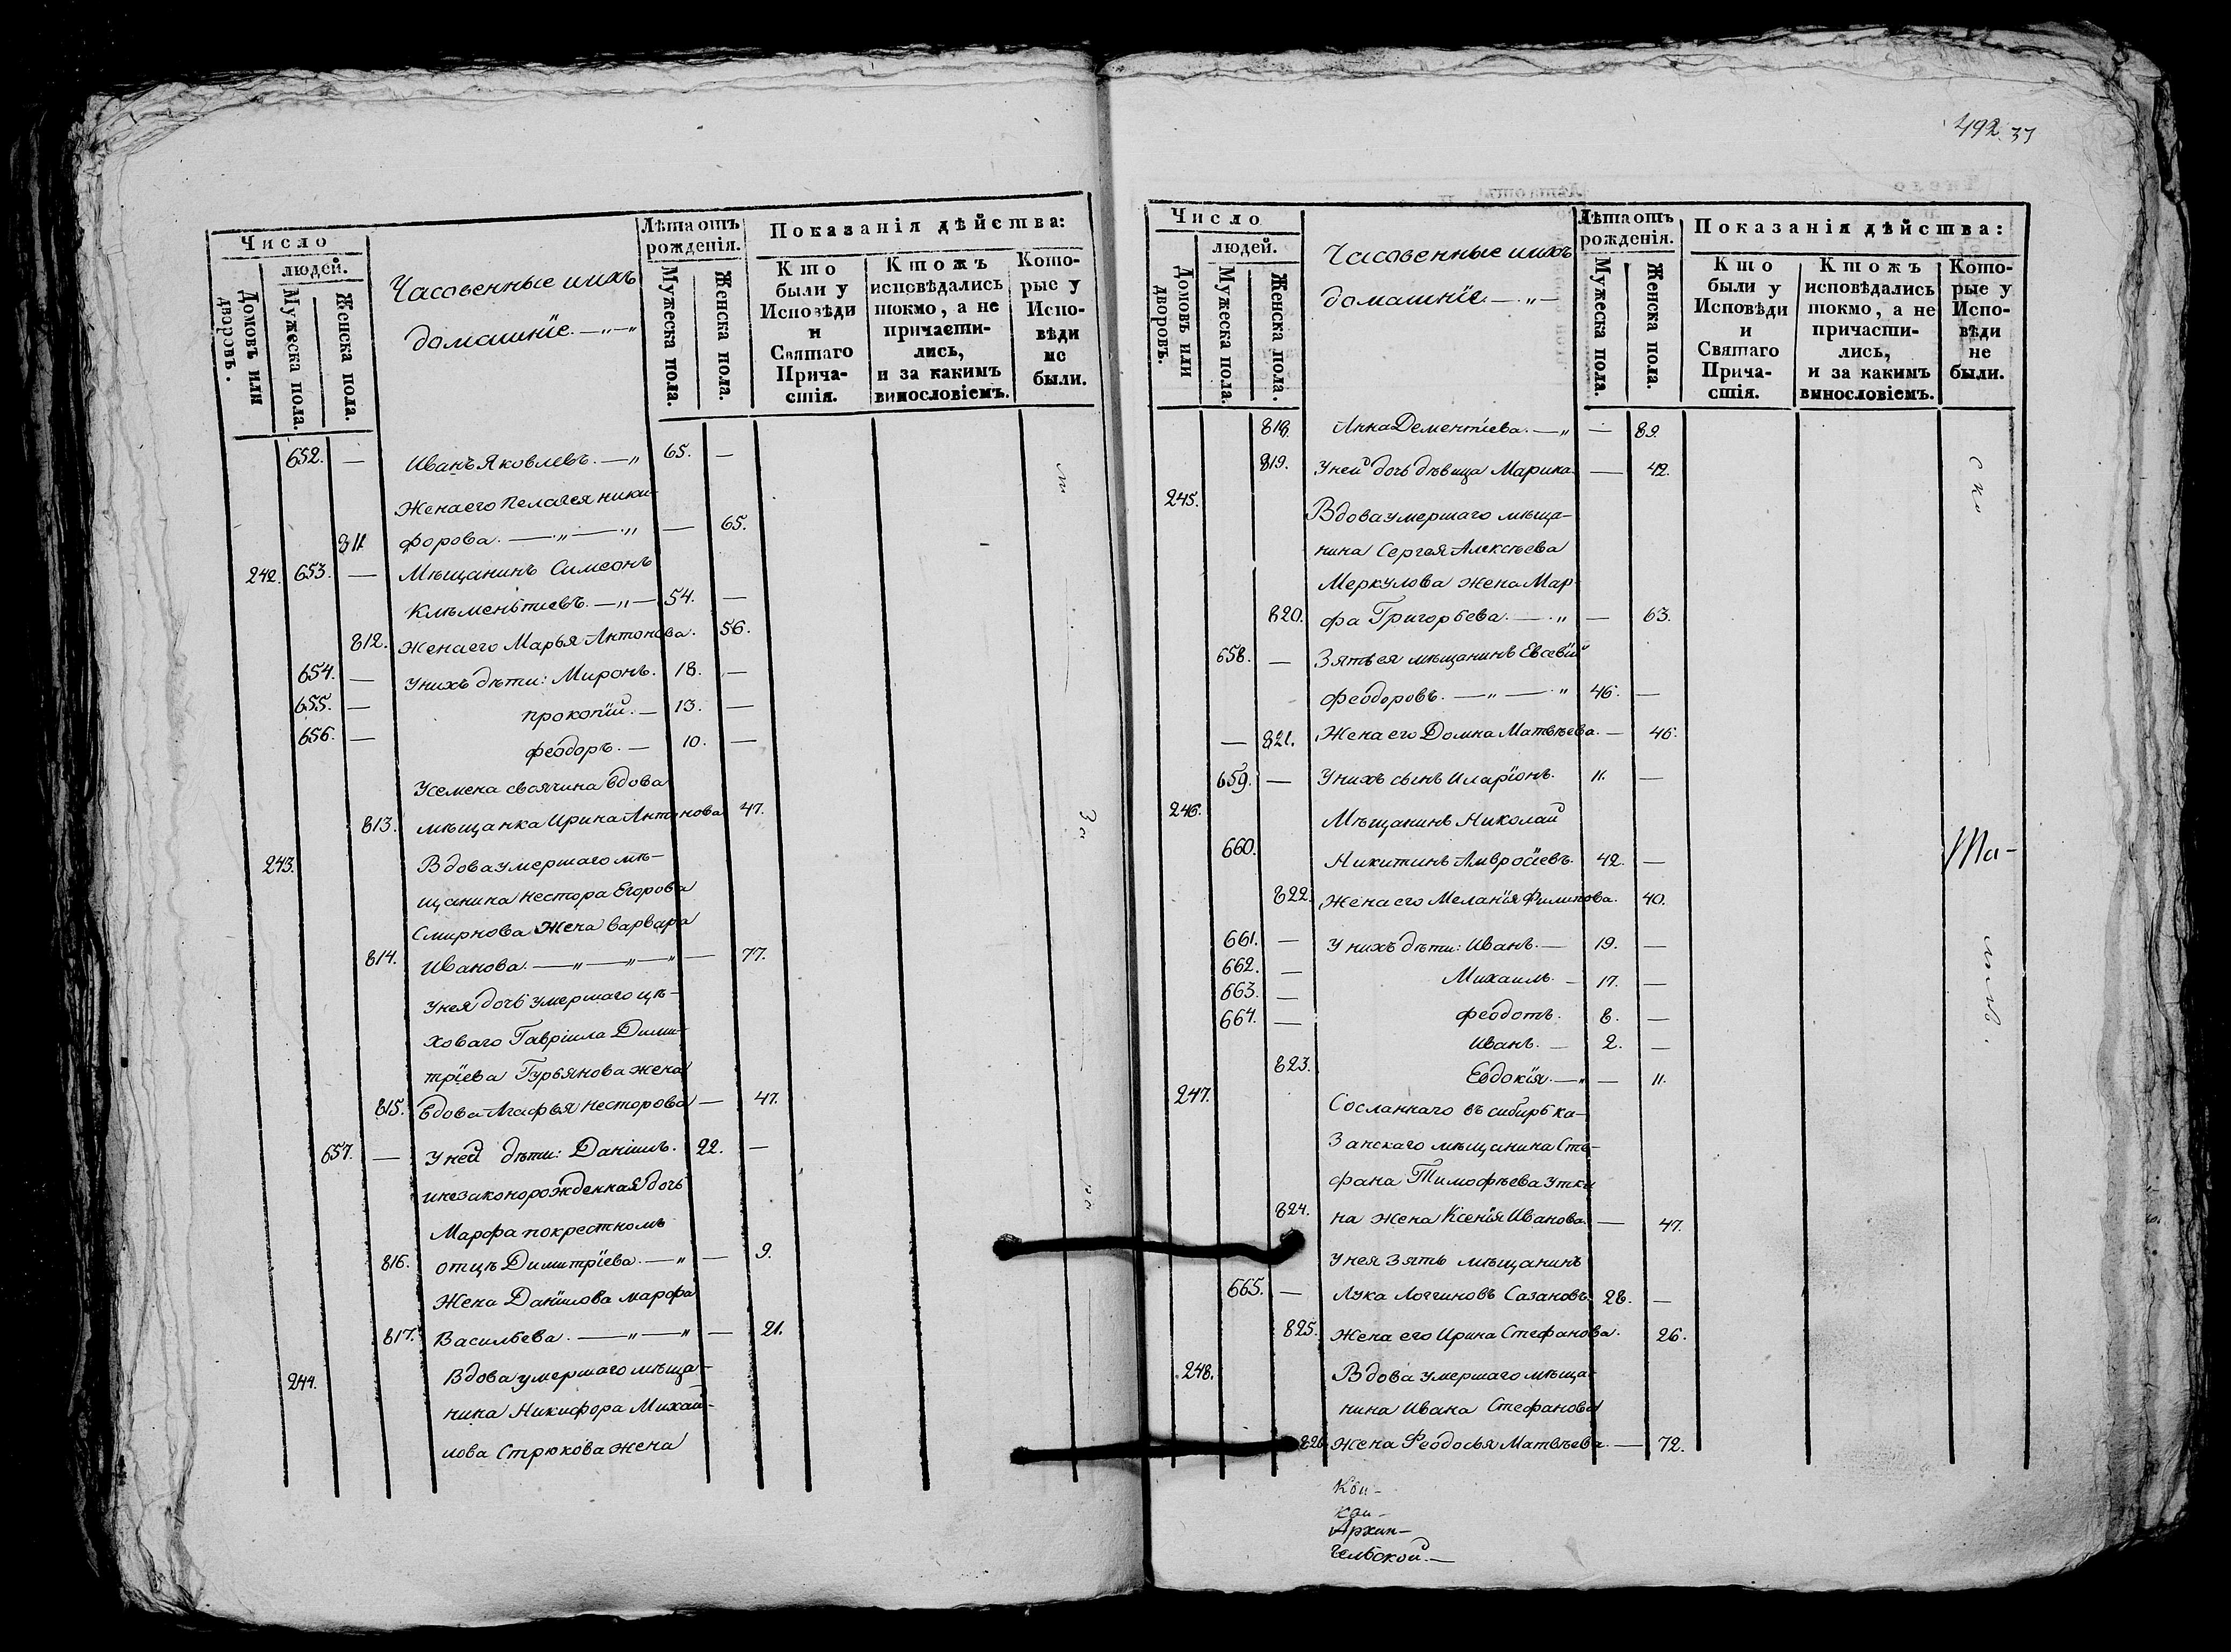 492. 37
Число
людей.
Домовъ или дворовъ.
Мужеска пола.
Женска пола.
Часовенные инхъ
домашнїе. — „ — „
Лѣта отъ рожденія.
Мужеска пола.
Женска пола.
Показанія дѣйства:
Кто были у Исповѣди и Святаго Причастія.
Ктожъ исповѣдались токмо, а не причастились, и за какимъ винословіемъ.
Которые у Исповѣди не были.
652. — Иванъ Яковлевъ. — „ 65. —
Жена его Пелагея Ники-
811. форова. — „ — „ — 65.
242. 653. — Мѣщанинъ Симеонъ
Клѣментиевъ. — „ — 54. —
812. Жена его Марья Антонова. 56.
654. — У нихъ дѣти: Миронъ. 18. —
655. — Прокопїй. — 13. —
656. — Феодоръ. — 10. —
У семена своячина вдова
813. мѣщанка Ирина Антонова 47.
243. Вдова умершаго мѣ-
щанина Нестора Егорова
Смирнова Жена Варвара
814. Иванова. — „ — „ — „ — 77.
У нея дочь умершаго цѣ-
ховаго Гаврїила Дими-
трїева Гурьянова жена
815. вдова Агафья Несторова — 47.
657. — У ней дѣти: Данїилъ. 22. —
и незаконорожденная дочь
Марфа по крестномъ
816. отцѣ Димитрїева. — „ — 9.
Жена Данїилова Марфа
817. Васильева. — „ — „ — 21.
244. Вдова умершаго мѣща-
нина Никифора Михай-
лова Стрюкова жена
За
Число
людей.
Домовъ или дворовъ.
Мужеска пола.
Женска пола.
Часовенные инхъ
домашнїе. — „ —
Лѣта отъ рожденія.
Мужеска пола.
Женска пола.
Показанія дѣйства:
Кто были у Исповѣди и Святаго Причастія.
Ктожъ исповѣдались токмо, а не причастились, и за какимъ винословіемъ.
Которые у Исповѣди не были.
818. Анна Дементїева. — „ — 89.
819. У ней дочь дѣвица Марина — 42.
245. Вдова умершаго мѣща-
нина Сергея Алексѣева
Меркулова жена Мар-
820. фа Григорьева. — „ — 63.
658. — Зять ея мѣщанинъ Евсевїй
Феодоровъ. — „ — „ 46. —
— 821. Жена его Домна Матвѣева. — 46.
659. — У нихъ сынъ Иларїонъ. 11. —
246. Мѣщанинъ Николай
660. Никитинъ Амвросїевъ. 42. —
822. Жена его Меланїя Филипова. 40.
661. — У нихъ дѣти: Иванъ. — 19. —
662. — Михаилъ. — 17. —
663. — Феодотъ. 8. —
664. — Иванъ. — 2. —
823. Евдокїя. — „ — 11.
247. Сосланнаго въ сибирь ка-
занскаго мѣщанина Сте-
фана Тимофѣева Утки
824. на жена Ксенїя Иванова. — 47.
У нея зять мѣщанинъ
665. — Лука Логгиновъ Сазановъ. 28. —
825. Жена его Ирина Стефанова. 26.
248. Вдова умершаго мѣща-
нина Ивана Стефанова
826. Жена Феодосья Матвѣева. — 72.
ско
Та-
Архан-
гельской. —